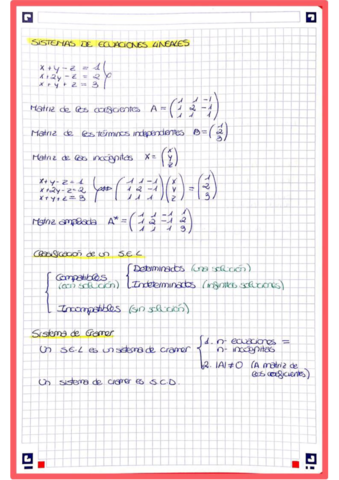 SISTEMAS DE ECUACIONES LINEALES
x + y - z = 1
x + 2y - z = 2
x + y + z = 3
Matriz de los coeficientes A = (1 1 -1
1 2 -1
1 1 1)
Matriz de los términos independientes B = (1
2
3)
Matriz de las incógnitas X = (x
y
z)
x + y - z = 1
x + 2y - z = 2
x + y + z = 3
(1 1 -1
1 2 -1
1 1 1) (x
y
z) = (1
2
3)
Matriz ampliada A* = (1 1 -1 1
1 2 -1 2
1 1 1 3)
Clasificación de un S.E.L
Compatibles
(con solución)
Determinados (una solución)
Indeterminados (infinitas soluciones)
Incompatibles (sin solución)
Sistema de Cramer
Un S.E.L es un sistema de cramer
1. nº ecuaciones =
nº incógnitas
2. |A| ≠ 0 (A matriz de
los coeficientes)
Un sistema de cramer es S.C.D.